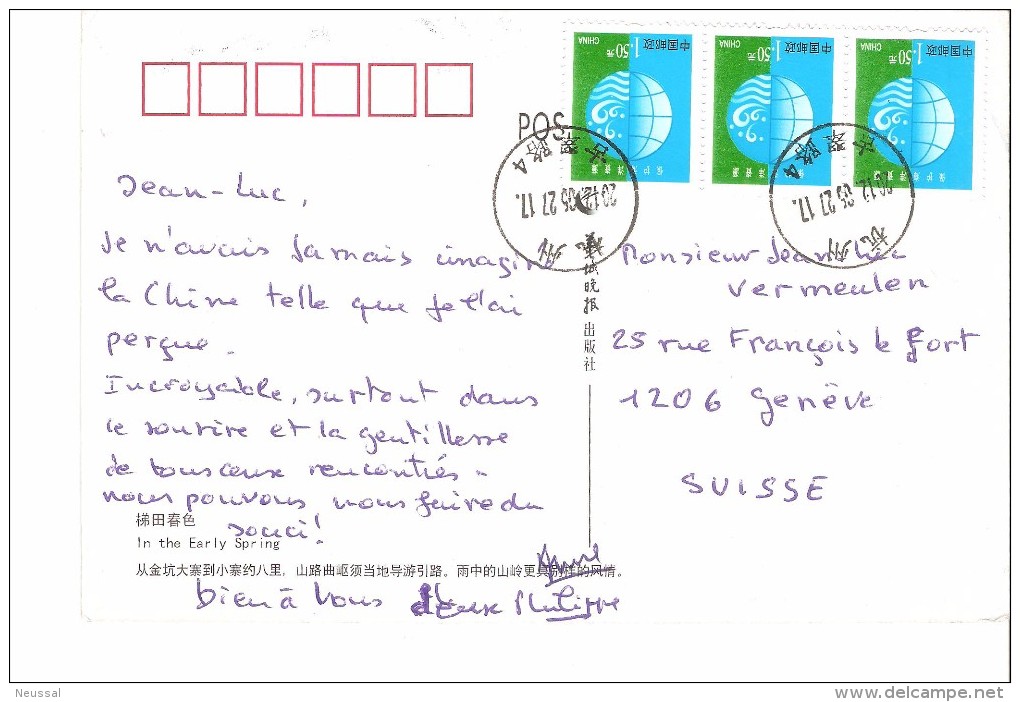 中国邮政
1.50元
CHINA
中国邮政
1.50元
CHINA
中国邮政
1.50元
CHINA
保护海洋资源
保护海洋资源
POS
2012.05.27 17
2012.05.27 17
杭州
Jean-Luc,
Je n'avais jamais imaginé
la Chine telle que je l'ai
perçue.
Incroyable, surtout dans
le sourire et la gentillesse
de tous ceux rencontrés.
nous pouvons nous faire du
souci!
bien à vous deux Philippe
Anne
梯田春色
In the Early Spring
从金坑大寨到小寨约八里，山路曲岖须当地导游引路。雨中的山岭更具别样的风情。
晚报出版社
Monsieur Jean Luc
Vermeulen
25 rue François le Fort
1206 Genève
SUISSE
Neussal
www.delcampe.net